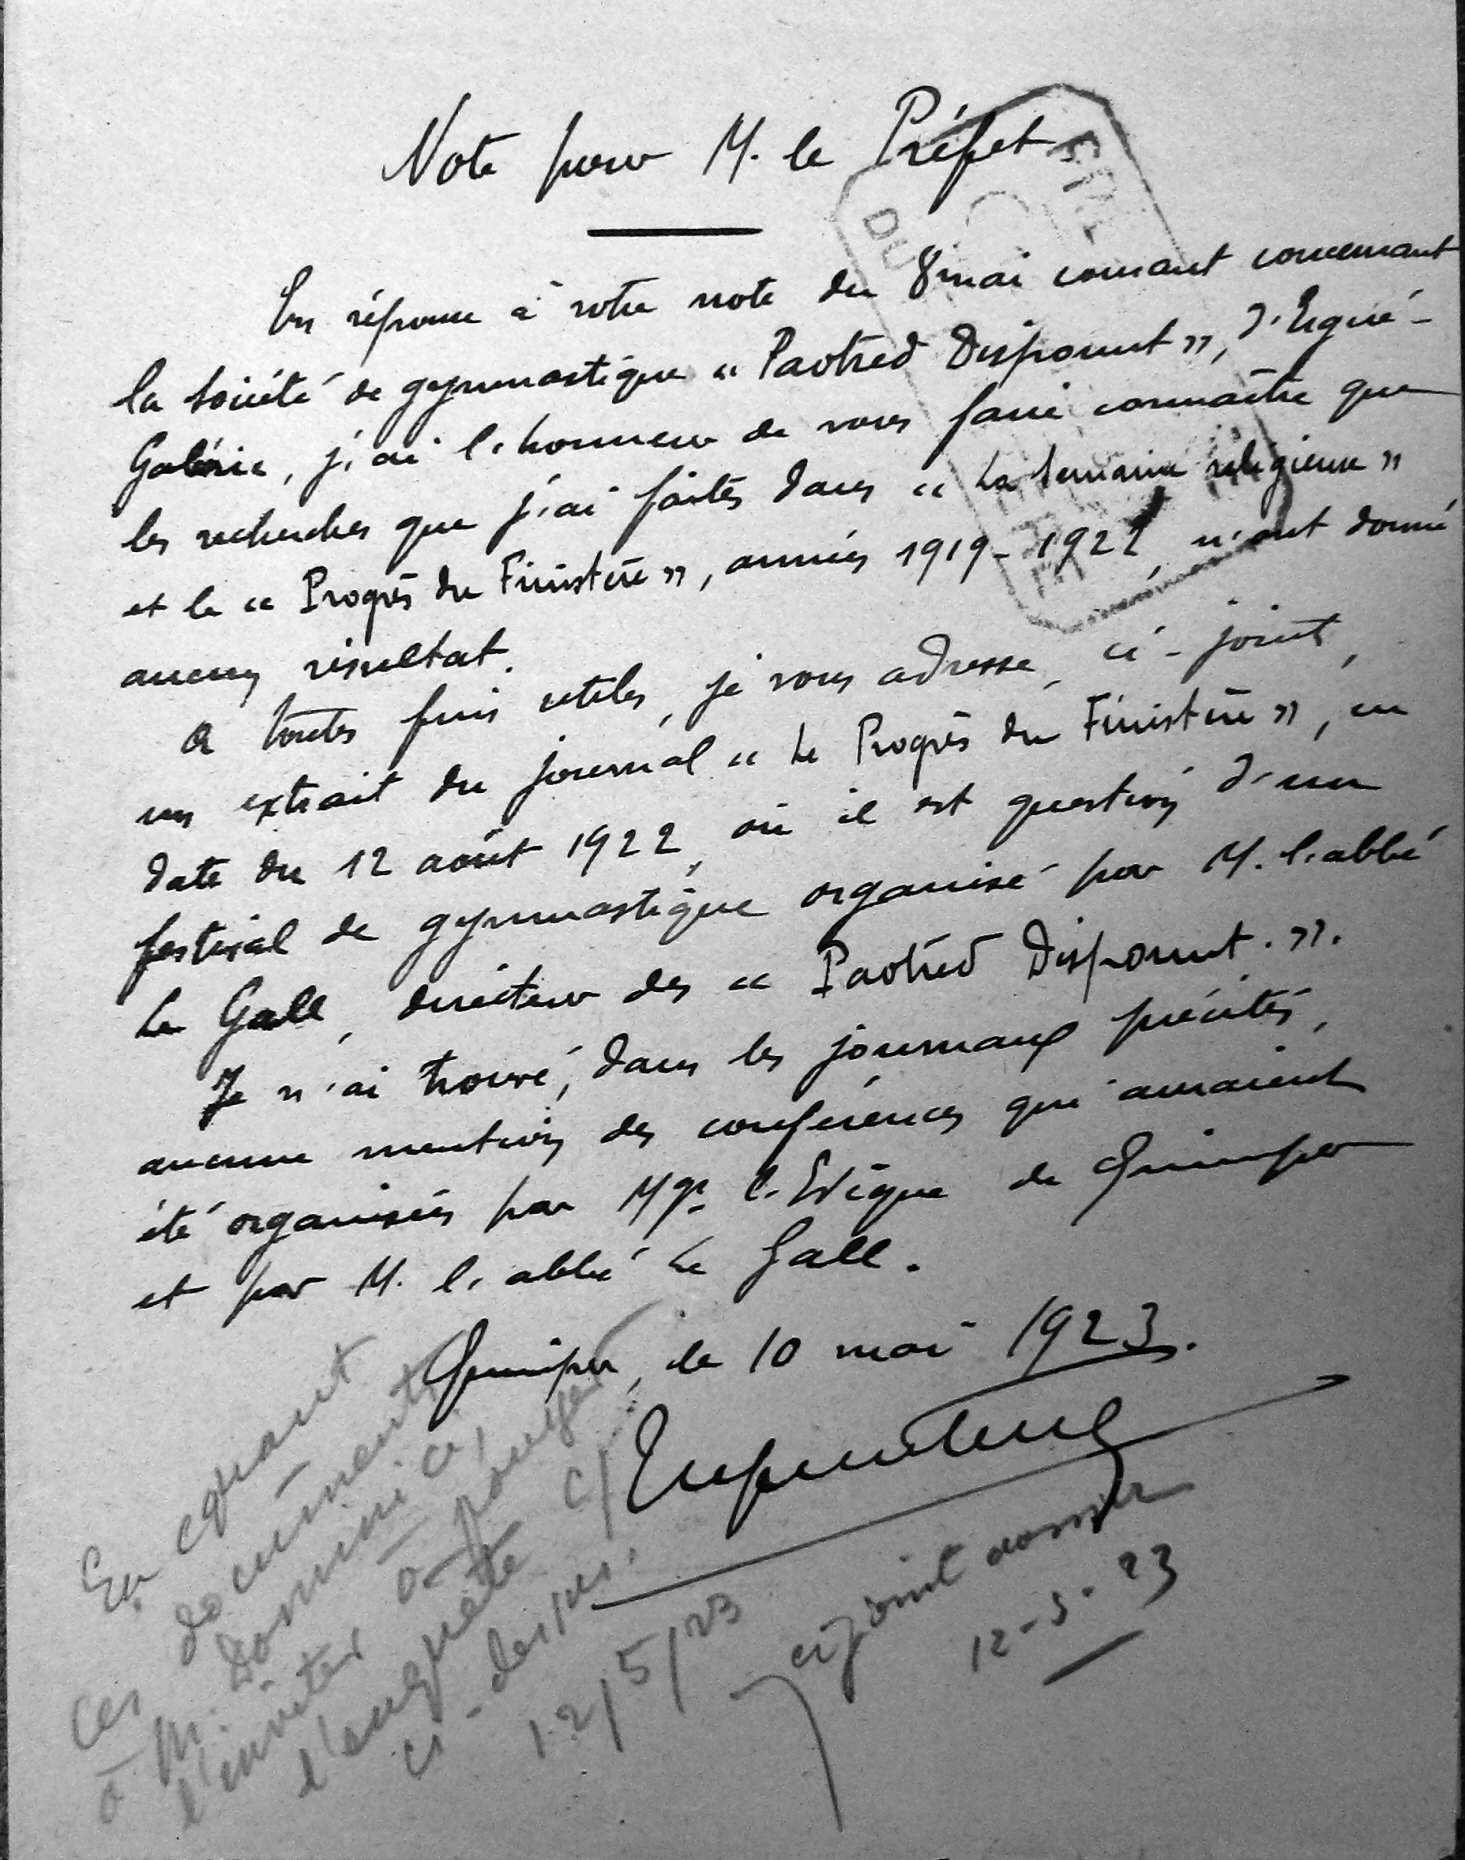 Note pour M. le Préfet
En réponse à votre note du 8 mai courant concernant
la Société de gymnastique « Paotred Dispount », d'Ergué-
Gabéric, j'ai l'honneur de vous faire connaître que
les recherches que j'ai faites dans « La Semaine religieuse »
et le « Progrès du Finistère », années 1919-1922, n'ont donné
aucun résultat.
A toutes fins utiles, je vous adresse, ci-joint,
un extrait du journal « Le Progrès du Finistère », en
date du 12 août 1922, où il est question d'un
festival de gymnastique organisé par M. l'abbé
Le Gall, directeur des « Paotred Dispount. ».
Je n'ai trouvé, dans les journaux précités,
aucune mention des conférences qui auraient
été organisées par Mgr l'Evêque de Quimper
et par M. l'abbé Le Gall.
Quimper, le 10 mai 1923.
En
ces documents
à M. Dominici,
l'inviter à
l'enquête
ci-dessus.
12/5/23
ci joint dossier
12-5-23